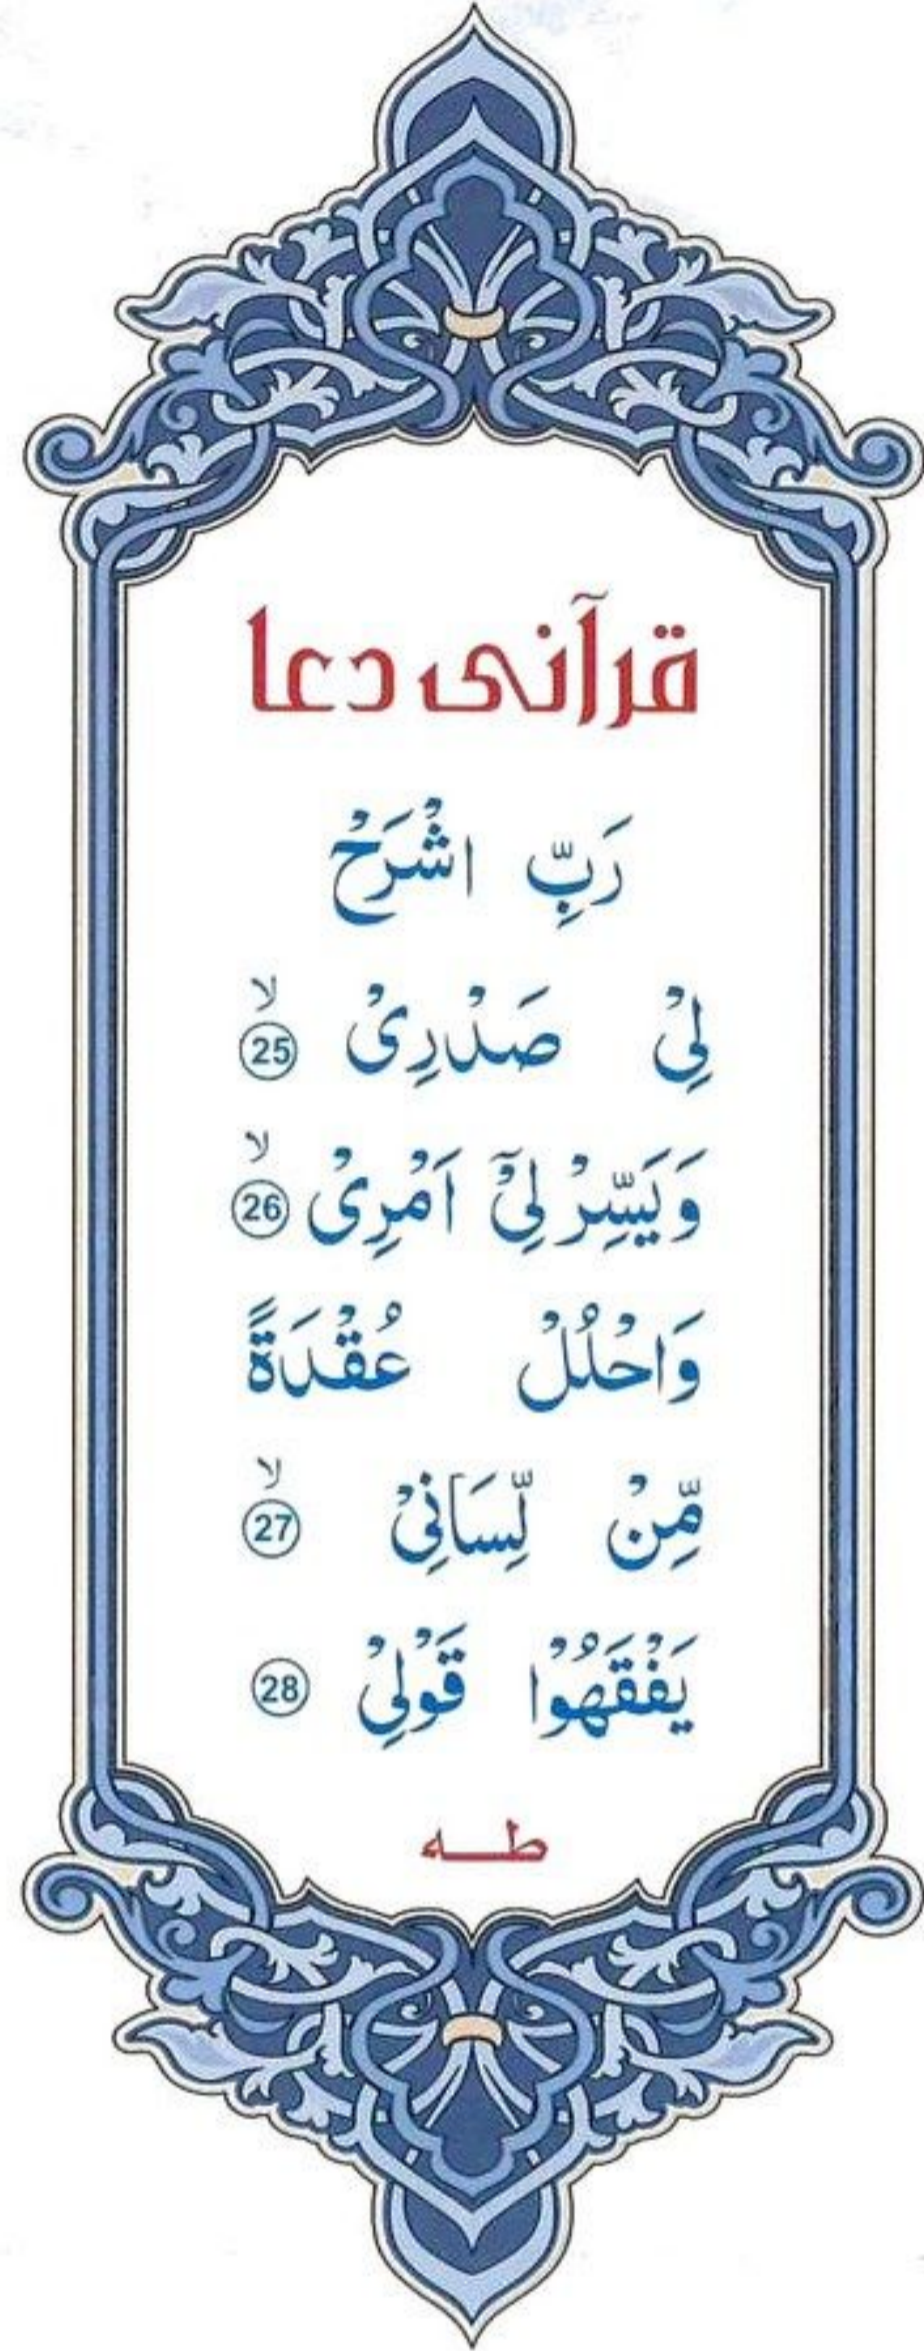 قرآنی دعا
رَبِّ اشْرَحْ
لِیْ صَدْرِیْ ۙ 25
وَیَسِّرْ لِیْۤ اَمْرِیْ ۙ 26
وَاحْلُلْ عُقْدَةً
مِّنْ لِّسَانِیْ ۙ 27
یَفْقَهُوْا قَوْلِیْ 28
طـــہ